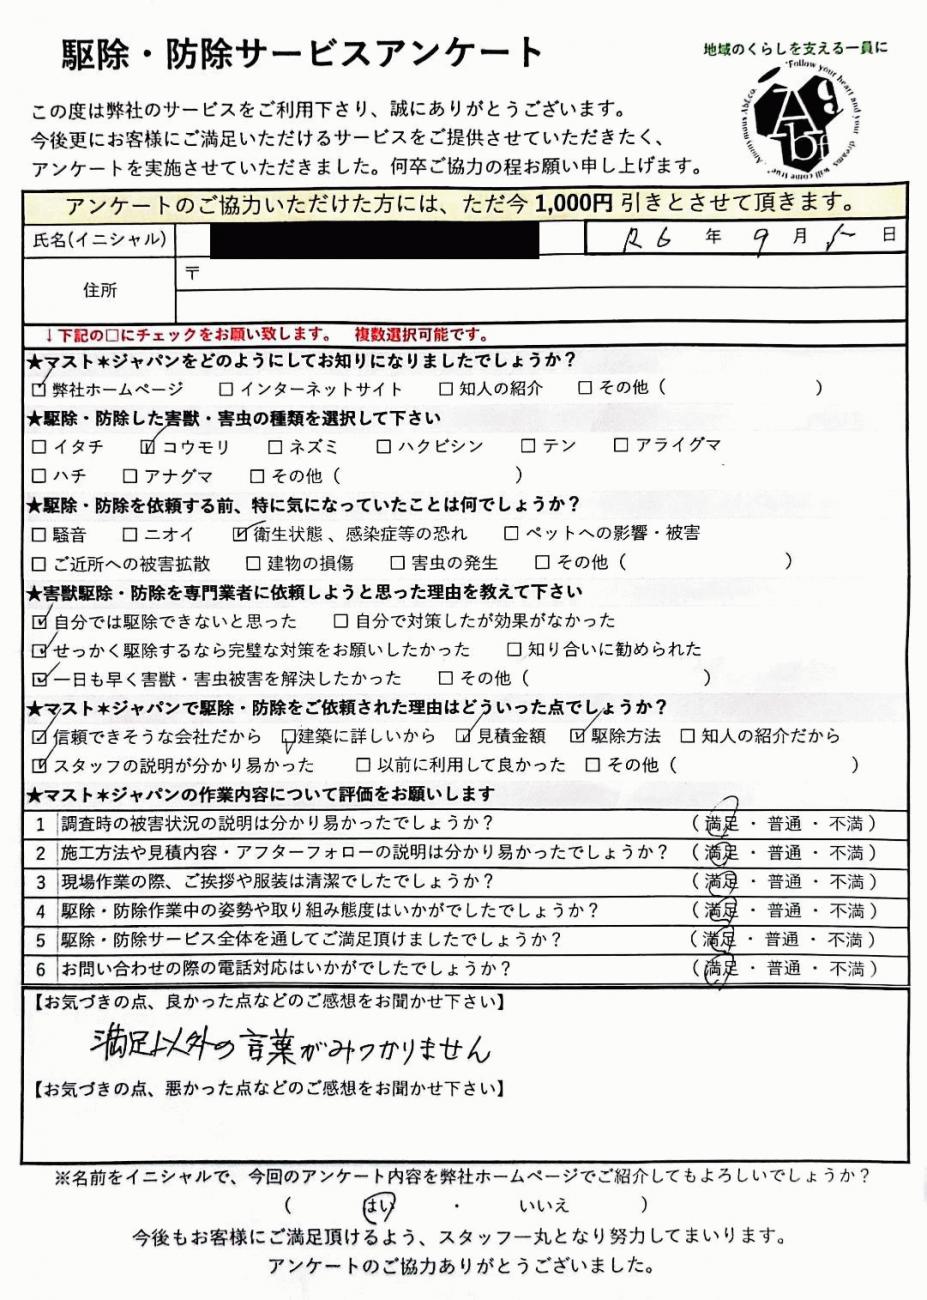 駆除・防除サービスアンケート
地域のくらしを支える一員に
"Follow your heart and your dreams will come true" Anonymous Abf.co.
Ag
bf
この度は弊社のサービスをご利用下さり、誠にありがとうございます。
今後更にお客様にご満足いただけるサービスをご提供させていただきたく、
アンケートを実施させていただきました。何卒ご協力の程お願い申し上げます。
アンケートのご協力いただけた方には、ただ今 1,000円 引きとさせて頂きます。
氏名(イニシャル) R6 年 9 月 日
住所 〒
↓下記の□にチェックをお願い致します。 複数選択可能です。
★マスト＊ジャパンをどのようにしてお知りになりましたでしょうか？
☑ 弊社ホームページ □ インターネットサイト □ 知人の紹介 □ その他（ ）
★駆除・防除した害獣・害虫の種類を選択して下さい
□ イタチ ☑ コウモリ □ ネズミ □ ハクビシン □ テン □ アライグマ
□ ハチ □ アナグマ □ その他（ ）
★駆除・防除を依頼する前、特に気になっていたことは何でしょうか？
□ 騒音 □ ニオイ ☑ 衛生状態 、感染症等の恐れ □ ペットへの影響・被害
□ ご近所への被害拡散 □ 建物の損傷 □ 害虫の発生 □ その他（ ）
★害獣駆除・防除を専門業者に依頼しようと思った理由を教えて下さい
☑ 自分では駆除できないと思った □ 自分で対策したが効果がなかった
☑ せっかく駆除するなら完璧な対策をお願いしたかった □ 知り合いに勧められた
☑ 一日も早く害獣・害虫被害を解決したかった □ その他（ ）
★マスト＊ジャパンで駆除・防除をご依頼された理由はどういった点でしょうか？
☑ 信頼できそうな会社だから ☑ 建築に詳しいから ☑ 見積金額 ☑ 駆除方法 □ 知人の紹介だから
☑ スタッフの説明が分かり易かった □ 以前に利用して良かった □ その他（ ）
★マスト＊ジャパンの作業内容について評価をお願いします
1 調査時の被害状況の説明は分かり易かったでしょうか？ （ 満足 ・ 普通 ・ 不満 ）
2 施工方法や見積内容・アフターフォローの説明は分かり易かったでしょうか？ （ 満足 ・ 普通 ・ 不満 ）
3 現場作業の際、ご挨拶や服装は清潔でしたでしょうか？ （ 満足 ・ 普通 ・ 不満 ）
4 駆除・防除作業中の姿勢や取り組み態度はいかがでしたでしょうか？ （ 満足 ・ 普通 ・ 不満 ）
5 駆除・防除サービス全体を通してご満足頂けましたでしょうか？ （ 満足 ・ 普通 ・ 不満 ）
6 お問い合わせの際の電話対応はいかがでしたでしょうか？ （ 満足 ・ 普通 ・ 不満 ）
【お気づきの点、良かった点などのご感想をお聞かせ下さい】
満足以外の言葉がみつかりません
【お気づきの点、悪かった点などのご感想をお聞かせ下さい】
※名前をイニシャルで、今回のアンケート内容を弊社ホームページでご紹介してもよろしいでしょうか？
（ はい ・ いいえ ）
今後もお客様にご満足頂けるよう、スタッフ一丸となり努力してまいります。
アンケートのご協力ありがとうございました。